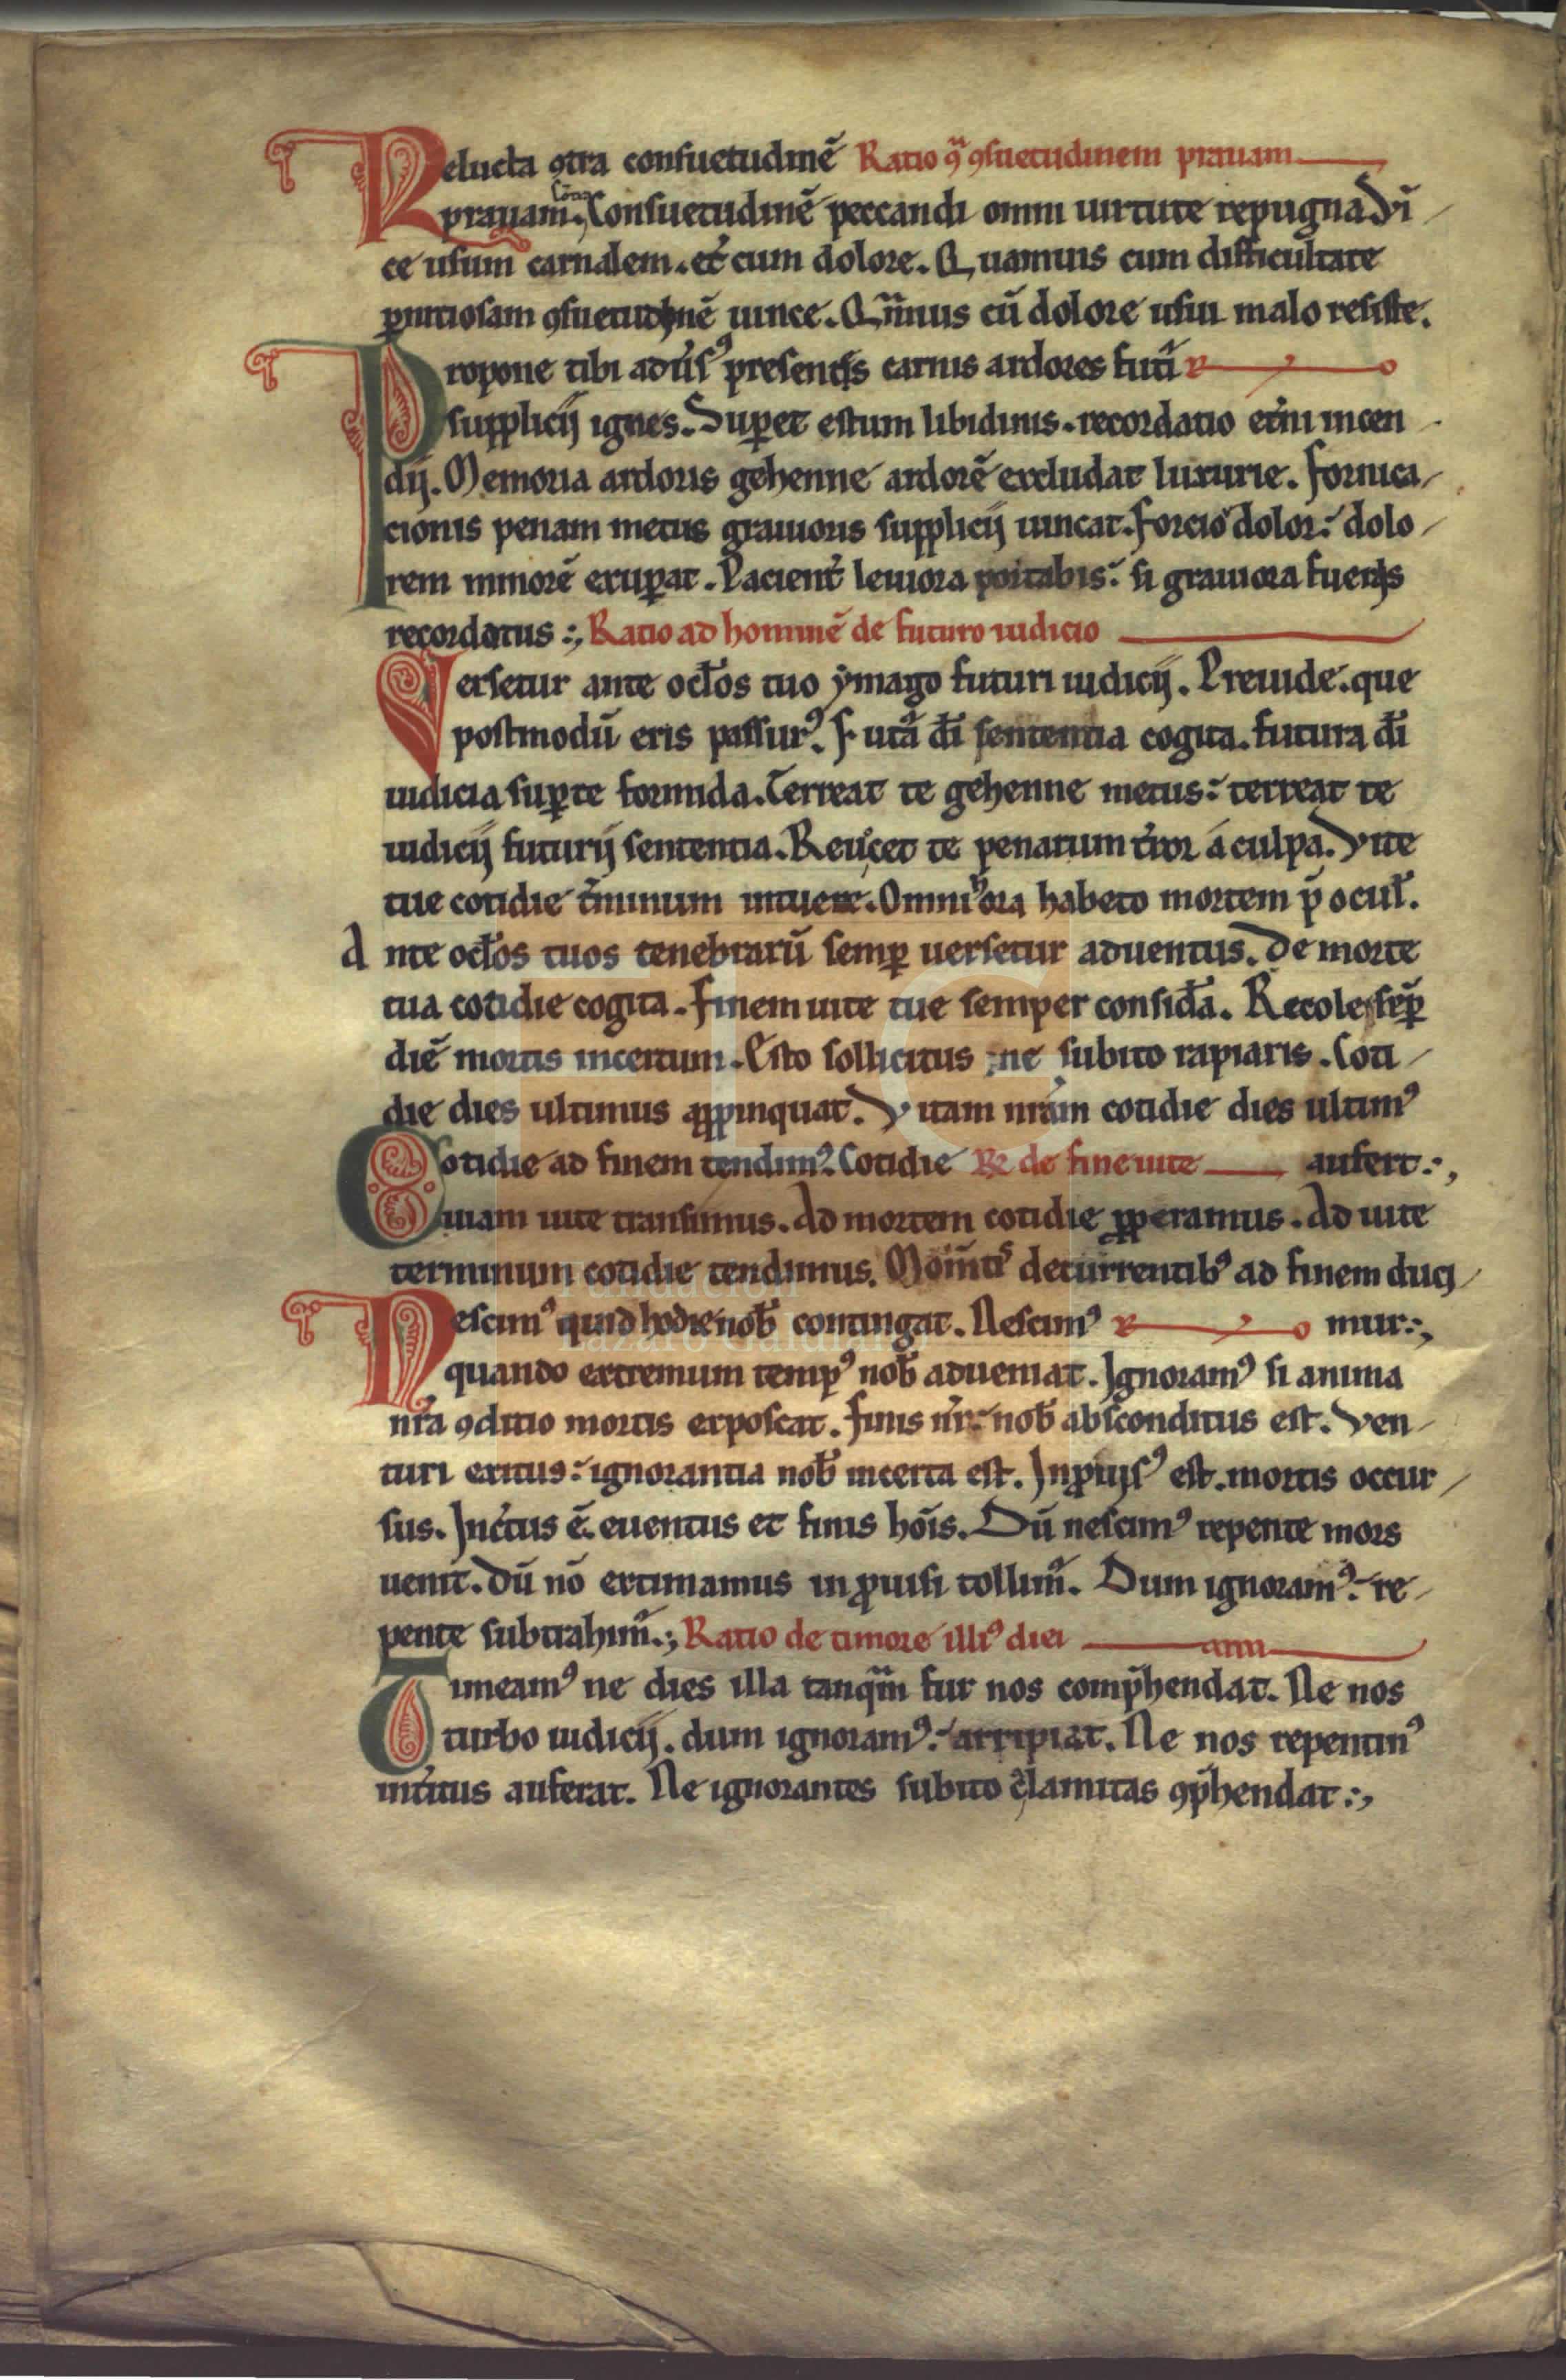 Relucta ꝯtra consuetudinē Ratio ꝯͣ ꝯsuetudinem prauam
prauam. Consuetudinē peccandi omni uirtute repugna Vī
ce usum carnalem. et̄ cum dolore. Quamuis cum difficultate
ꝑnitiosam ꝯsuetudinē uince. Qͣmuis cū dolore usui malo resiste.
Propone tibi adūsꝰ presentis carnis ardores futi᷑
supplicij ignes. Suꝑet estum libidinis. recordatio et̄ni incen
dij. Memoria ardoris gehenne ardorē excludat luxurie. fornica
cionis penam metus grauioris supplicij uincat. forcioꝰ dolor: dolo
rem minorē exuꝑat. Pacient̄ leuiora portabis: si grauiora fueris
recordatus :, Ratio ad hominē de futuro iudicio
Versetur ante ocl̄os tuo ymago futuri iudicij. Preuide. que
postmodū eris passurꝰ. Futā dī sententia cogita. futura dī
iudicia suꝑ te formida. Terreat te gehenne metus: terreat te
iudicij futurij sententia. Reuōcet te penarum t̄ror á culpa. Vite
tue cotidie t̄minum intuere. Omni hora habeto mortem p̄ ocul̄.
Ante ocl̄os tuos tenebrarū semꝑ uersetur aduentus. De morte
tua cotidie cogita. Finem uite tue semper consid̄a. Recole seꝑ
diē mortis incertum. Esto sollicitus ne subito rapiaris. Coti
die dies ultimus aꝓpinquat. Vitam nrām cotidie dies ultimꝰ
Cotidie ad finem tendimꝰ. Cotidie R̄ de fine uite aufert :,
uiam uite transimus. Ad mortem cotidie ꝓperamus. Ad uite
terminum cotidie tendimus. Mom̄tis decurrentibꝰ ad finem duci
Nescimꝰ quid hodie nob̄ contingat. Nescimꝰ mur :,
quando extremum tempꝰ nob̄ adueniat. Ignoramꝰ si anima
nr̄a ꝯditio mortis exposcat. finis nr̄: nob̄ absconditus est. Ven
turi exitus: ignorantia nob̄ incerta est. Inꝓuisꝰ est. mortis occur
sus. Inc̄tus ē. euentus et finis hoīs. Dū nescimꝰ repente mors
uenit. Dū nō extimamus inꝓuisi tollim̄. Dum ignoramꝰ: re
pente subtrahim̄.; Ratio de timore illiꝰ diei
Timeamꝰ ne dies illa tanqͣm fur nos comp̄hendat. Ne nos
turbo iudicij. dum ignoramꝰ: arripiat. Ne nos repentinꝰ
int̄itus auferat. Ne ignorantes subito c̄lamitas ꝯp̄hendat :,
Fundación
Lázaro Galdiano